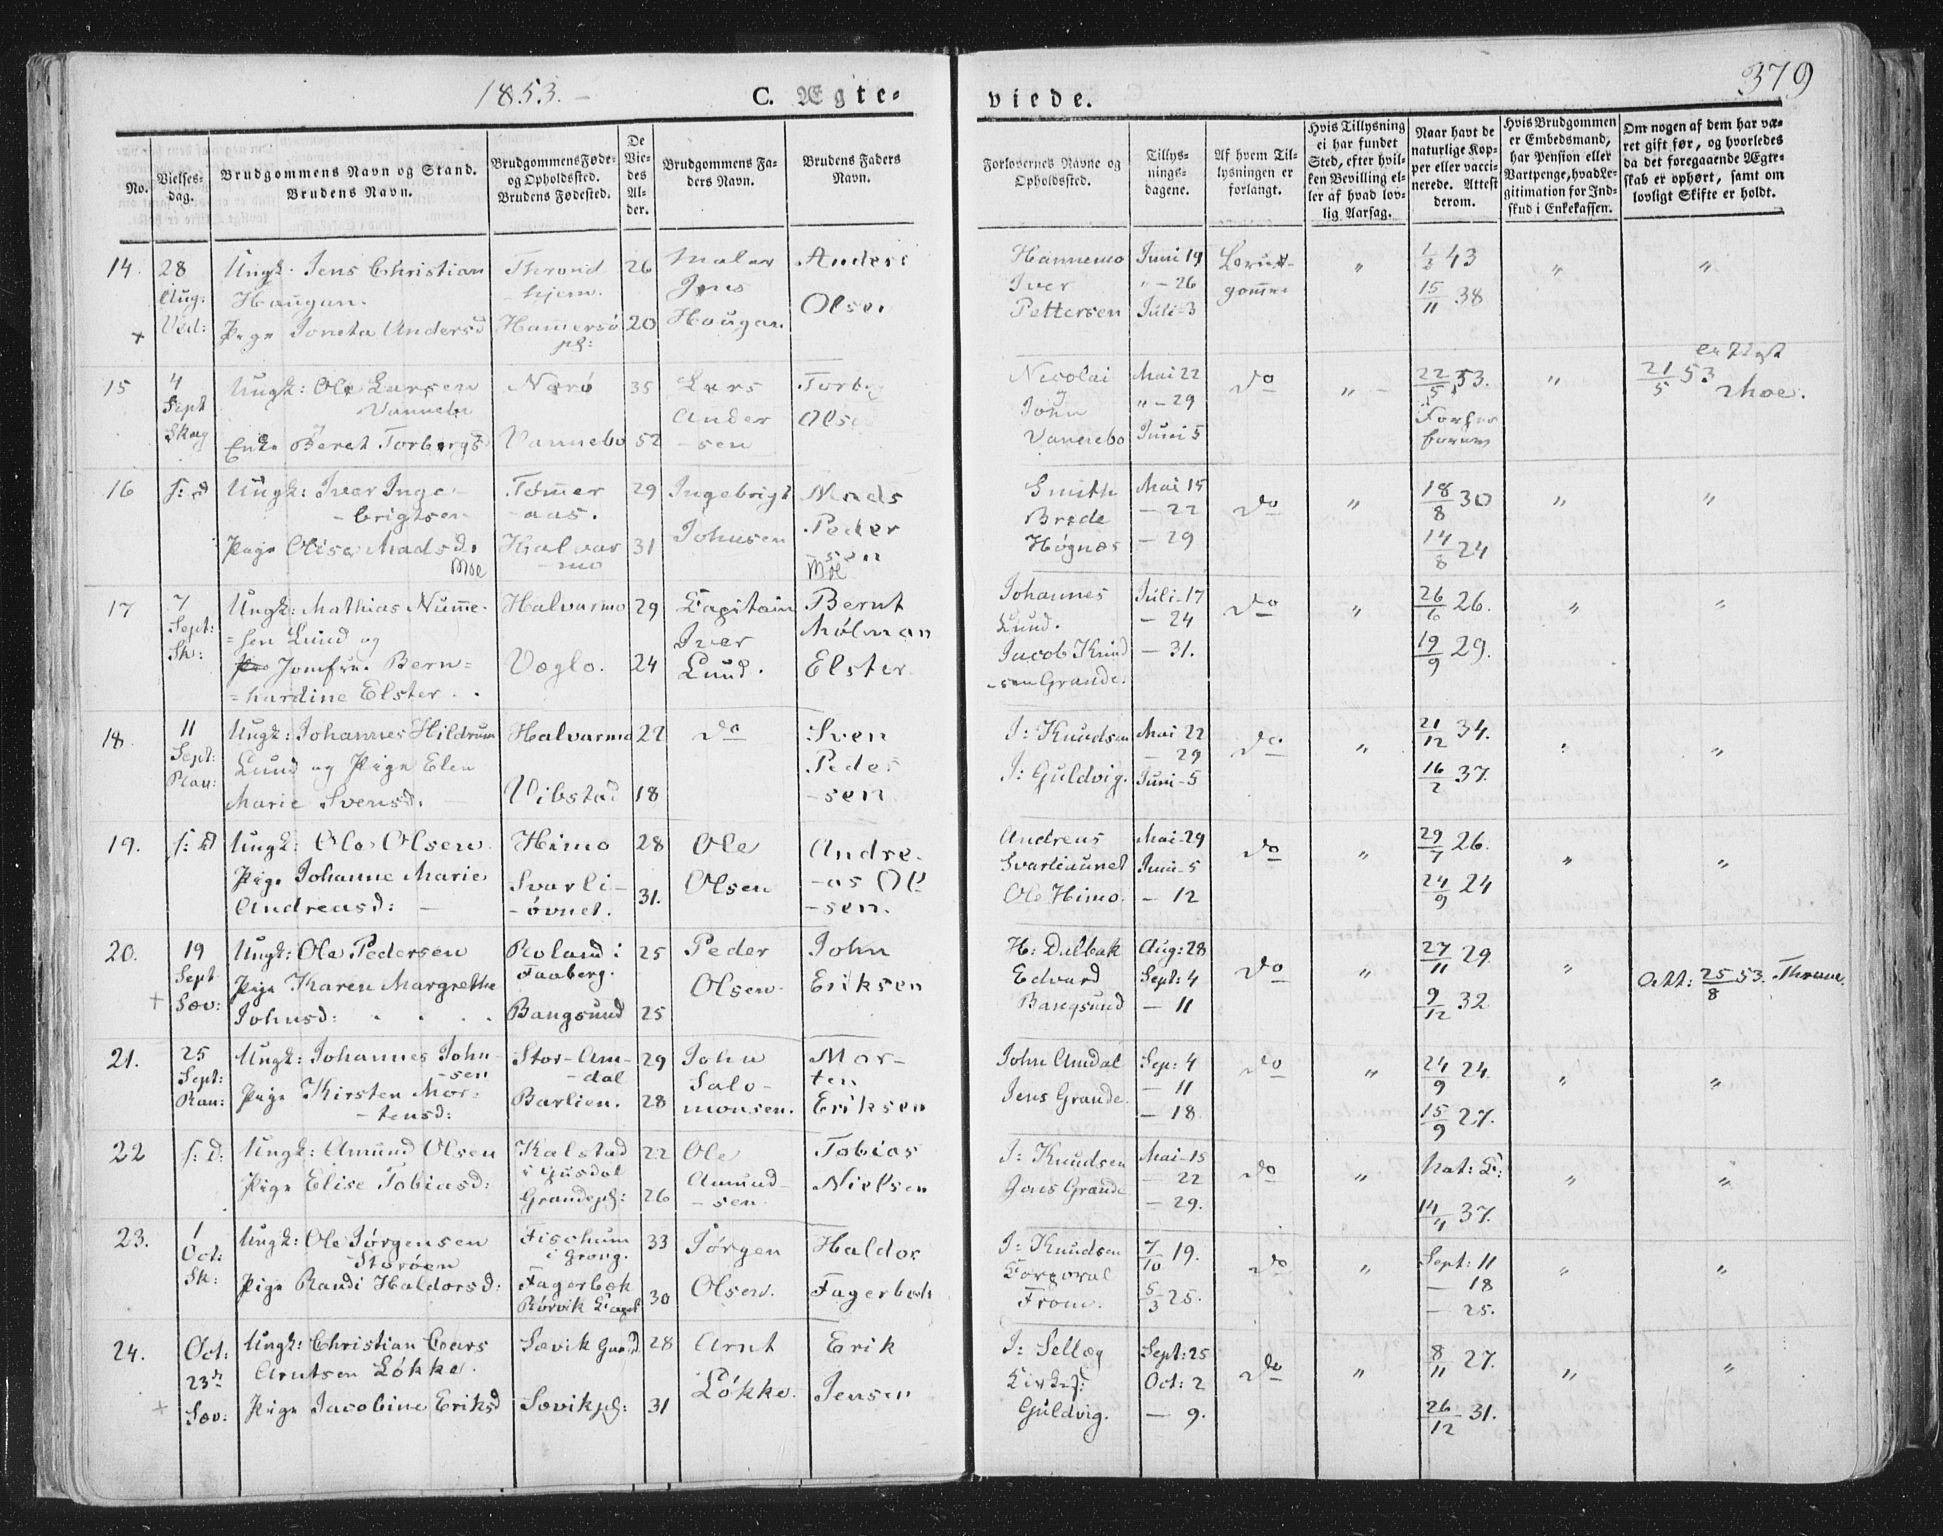 1853.
C. Ægte-
viede.
379
No.
Vielses-
dag.
Brudgommens Navn og Stand.
Brudens Navn.
Brudgommens Føde-
og Opholdssted.
Brudens Fødested.
De
Vie-
des
Al-
der.
Brudgommens Fa-
ders Navn.
Brudens Faders
Navn.
Forlovernes Navne og
Opholdssted.
Tillys-
nings-
dagene.
Af hvem Til-
lysningen er
forlangt.
Hvis Tillysning
ei har fundet
Sted, efter hvil-
ken Bevilling el-
ler af hvad lov-
lig Aarsag.
Naar havt de
naturlige Kop-
per eller vacci-
nerede. Attest
derom.
Hvis Brudgommen
er Embedsmand,
har Pension eller
Vartpenge, hvad Le-
gitimation for Ind-
skud i Enkekassen.
Om nogen af dem har væ-
ret gift før, og hvorledes
da det foregaaende Ægte-
skab er ophørt, samt om
lovligt Skifte er holdt.
14. 28 Aug: Ved:
Ungk. Jens Christian
Haugan.
Pige Joneta Andersd
Thrond-
hjem.
Hammersø
pl:
26
20
Maler
Jens
Hougan.
Anders
Olsen
Hannemo
Iver
Pettersen
Juni 19
" - 26
Juli - 3
Brud-
gommen
"
1/2 43
15/11 38
"
"
15 4 Sept Skag
Ungk: Ole Larsen
Vannebo
Enke Beret Torbergsd
Nærø
Vannebo
35
52
Lars
Ander
-sen
Torb
Ols
Nicolai
John
Vannebo
Mai 22
" - 29
Juni 5
do
"
22/5 53.
"
21/5 53
Moe.
16 s: d
Ungk: Iver Inge-
-brigtsen
Pige Olise Madsd.
Moe
Tømmer
-aas.
Halvar
-mo
29
31
Ingebrigt
Johnsen
Mads
Peder
-sen
Moe
Smith
Brede
Høgnæs
Mai 15
- 22
- 29
do
"
18/8 30
14/8 24
"
"
17 7 Sept: Sk:
Ungk: Mathias Numme-
=sen Lund og
Jomfru Bern=
=hardine Elster.
Halvarmo
Voglo.
29
24
Capitain
Iver
Lund.
Bernt
Mølman
Elster
Johannes
Lund.
Jacob Knud
-sen Grande.
Juli - 17
- 24
- 31.
do
"
26/6 26.
19/9 29.
"
"
18. 11 Sept: Ran:
Ungk: Johannes Hildrum
Lund og Pige Elen
Marie Svensd.
Halvarmo
Vibstad
22
18
do
Sven
Peder
-sen
J: Knudsen
J: Guldvig.
Mai 22
- 29
Juni - 5
do
"
21/12 34.
16/2 37.
"
"
19. s: d
Ungk: Ole Olsen
Pige Johanne Marie
Andreasd:
Himo
Svarli-
-øvnet.
28
31.
Ole
Olsen
Andre-
-as Ol
-sen.
Andreas
Svarliaunet
Ole Himo.
Mai - 29
Juni - 5
- 12
do
"
29/7 26.
24/9 24
"
"
20. 19 Sept Sæv:
Ungk: Ole Pedersen
Pige Karen Margrethe
Johnsd:
Roland i
Faaberg.
Bangsund
25
25
Peder
Olsen
John
Eriksen
H: Dalbak
Edvard
Bangsund
Aug: 28
Sept: 4
- 11
do
"
27/11 29.
9/12 32
"
Att: 25/8 53. Thrane.
21. 25 Sept: Ran:
Ungk: Johannes John-
-sen
Pige Kirsten Mor-
-tensd:
Stor-Am-
-dal
Barlien.
29
28
John
Salo-
monsen.
Mor-
ten
Eriksen
John Amdal
Jens Grande.
Sep: 4
- 11
- 18.
do
"
24/9 24.
15/9 27.
"
"
22 s: d:
Ungk: Amund Olsen
Pige Elise Tobiasd:
Kalstad
i Gusdal
Grandepl:
22
26
Ole
Amund-
-sen
Tobias
Nielsen
J: Knudsen
Jens Grande
Mai - 15
- 22
- 29.
do
"
Nat: K:
14/4 37.
"
"
23. 1 Oct: Sk:
Ungk: Ole Jørgensen
Storøen
Pige Randi Haldorsd:
Fischum
i Grong.
Fagerbæk
Rørvik Capel
33
30
Jørgen
Olsen.
Haldor
Fagerbæk
J: Knudsen
Corporal
From.
7/10 19.
5/3 25.
do
"
Sept: 11
- 18
- 25.
"
"
24. Oct: 23de Sæv:
Ungk: Christian Lars
Arntsen Løkke.
Pige Jacobine Eriksd
Sævik Gaard
Sævikpl:
28
31
Arnt
Løkke.
Erik
Jensen
J: Selleg
Kirkes:
Guldvig.
Sept: 25
Oct: 2
- 9.
do
"
8/11 27.
26/12 31.
"
"